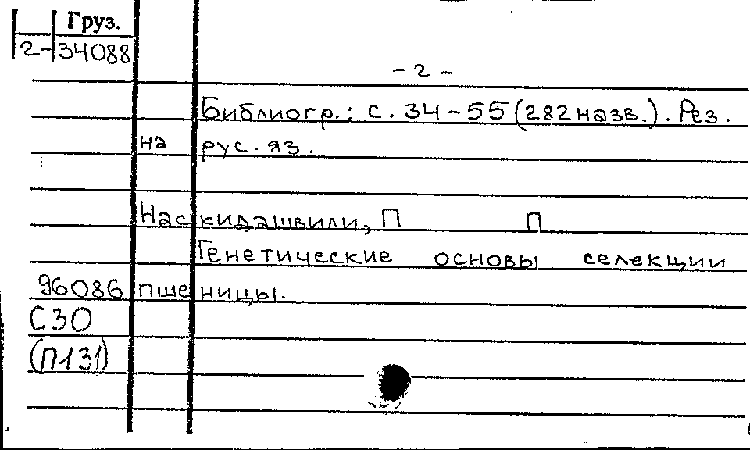 Груз.
2-34088
- 2 -
Библиогр.: с. 34-55 (282 назв.). Рез.
на рус. яз.
Наскидашвили, П П
Генетические основы селекции
96086 пшеницы.
С30
(П131)